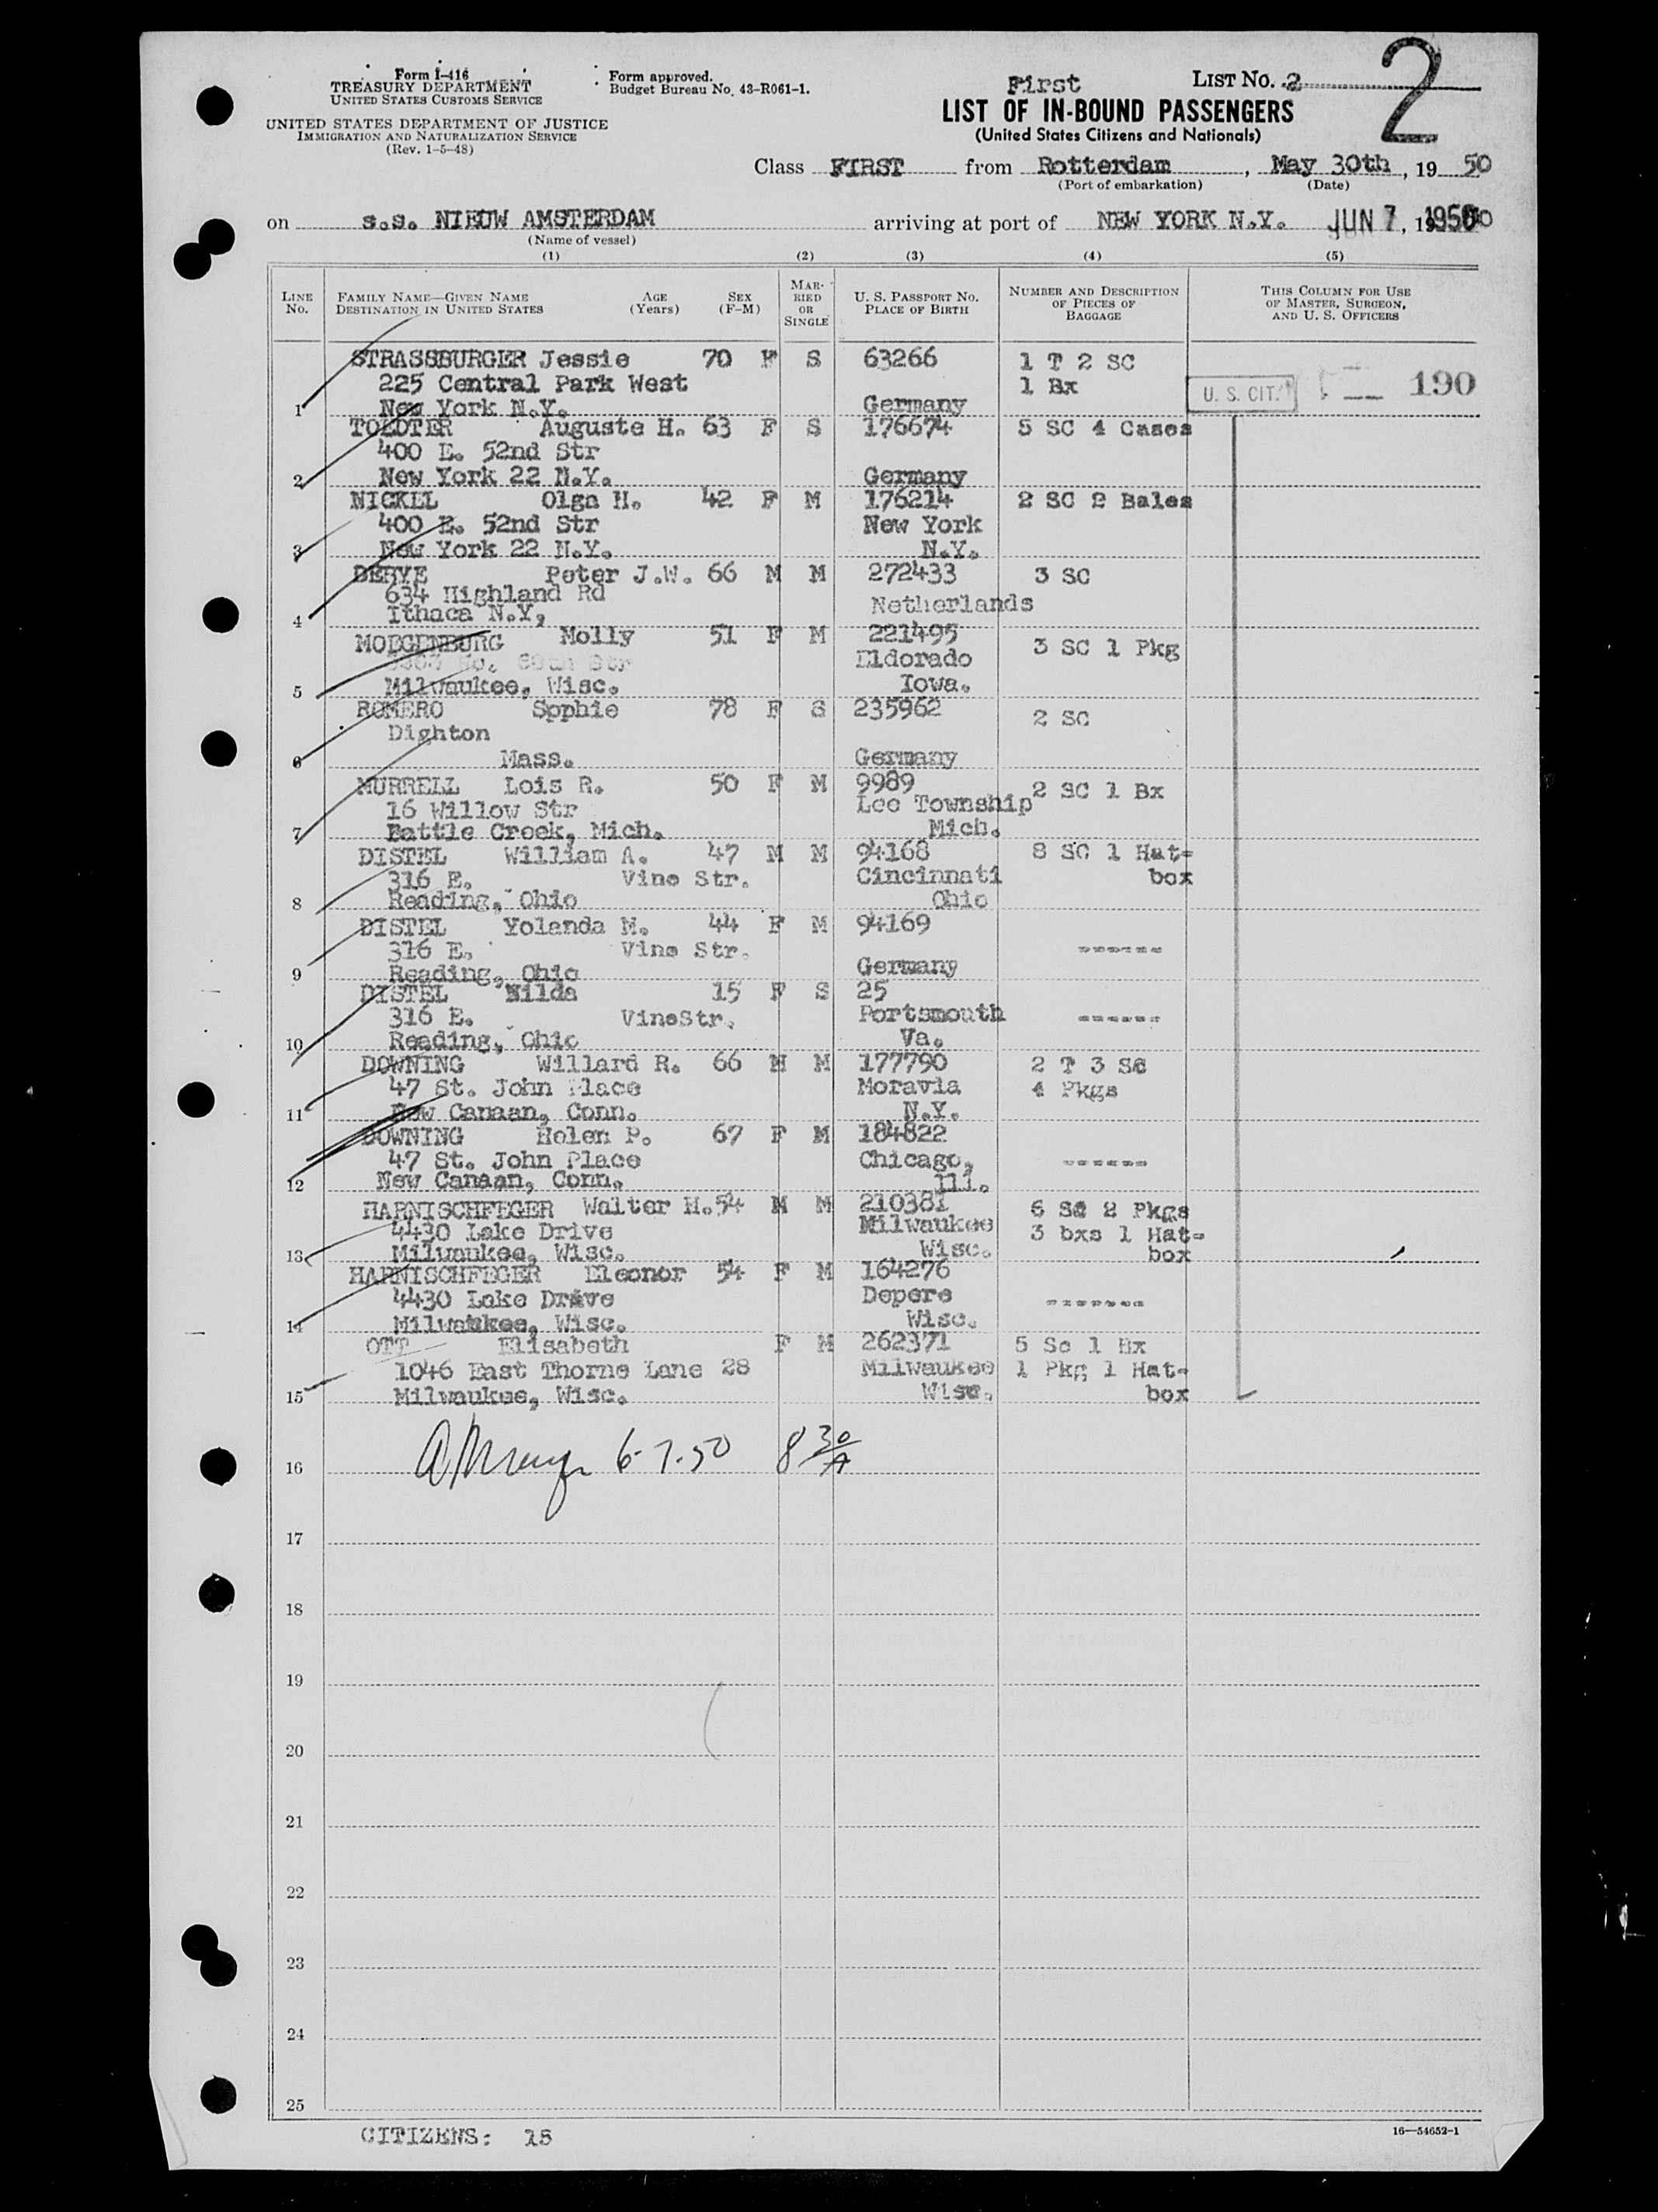 Form I-416
TREASURY DEPARTMENT
UNITED STATES CUSTOMS SERVICE
UNITED STATES DEPARTMENT OF JUSTICE
IMMIGRATION AND NATURALIZATION SERVICE
(Rev. 1-5-48)
Form approved.
Budget Bureau No. 43-R061-1.
First
LIST NO. 2
2
LIST OF IN-BOUND PASSENGERS
(United States Citizens and Nationals)
Class FIRST from Rotterdam, May 30th, 19 50
(Port of embarkation) (Date)
on s.s. NIEUW AMSTERDAM arriving at port of NEW YORK N.Y. JUN 7, 1950
(Name of vessel)
(1) (2) (3) (4) (5)
LINE NO. FAMILY NAME—GIVEN NAME DESTINATION IN UNITED STATES AGE (Years) SEX (F-M) MARRIED OR SINGLE U. S. PASSPORT NO. PLACE OF BIRTH NUMBER AND DESCRIPTION OF PIECES OF BAGGAGE THIS COLUMN FOR USE OF MASTER, SURGEON, AND U. S. OFFICERS
STRASSBURGER Jessie 70 F S 63266 1 T 2 SC
225 Central Park West 1 Bx U. S. CIT. 190
1 New York N.Y. Germany
TOLDTER Auguste H. 63 F S 176674 5 SC 4 Cases
400 E. 52nd Str
2 New York 22 N.Y. Germany
NICKEL Olga H. 42 F M 176214 2 SC 2 Bales
400 E. 52nd Str New York
3 New York 22 N.Y. N.Y.
DEBYE Peter J.W. 66 M M 272433 3 SC
634 Highland Rd Netherlands
4 Ithaca N.Y,
MOEGENBURG Molly 51 F M 221495 3 SC 1 Pkg
Str Eldorado
5 Milwaukee, Wisc. Iowa.
ROMERO Sophie 78 F S 235962 2 SC
Dighton
6 Mass. Germany
MURRELL Lois R. 50 F M 9989 2 SC 1 Bx
16 Willow Str Lee Township
7 Battle Creek, Mich. Mich.
DISTEL William A. 47 M M 94168 8 SC 1 Hat-
316 E. Vine Str. Cincinnati box
8 Reading, Ohio Ohio
DISTEL Yolanda M. 44 F M 94169
316 E. Vine Str. ------
9 Reading, Ohio Germany
DISTEL Nilda 15 F S 25
316 E. VineStr. Portsmouth ------
10 Reading, Ohio Va.
DOWNING Willard R. 66 M M 177790 2 T 3 SC
47 St. John Place Moravia 4 Pkgs
11 New Canaan, Conn. N.Y.
DOWNING Helen P. 67 F M 184822
47 St. John Place Chicago, ------
12 New Canaan, Conn. Ill.
HARNISCHFEGER Walter H. 54 M M 210381 6 SC 2 Pkgs
4430 Lake Drive Milwaukee 3 bxs 1 Hat-
13 Milwaukee, Wisc. Wisc. box
HARNISCHFEGER Eleonor 54 F M 164276
4430 Lake Drive Depere -------
14 Milwaukee, Wisc. Wisc.
OTT Elisabeth F M 262371 5 Sc 1 Bx
1046 East Thorne Lane 28 Milwaukee 1 Pkg 1 Hat-
15 Milwaukee, Wisc. Wisc. box
16 6-7-50 8 30/A
17
18
19
20
21
22
23
24
25
CITIZENS: 15
16—54652-1